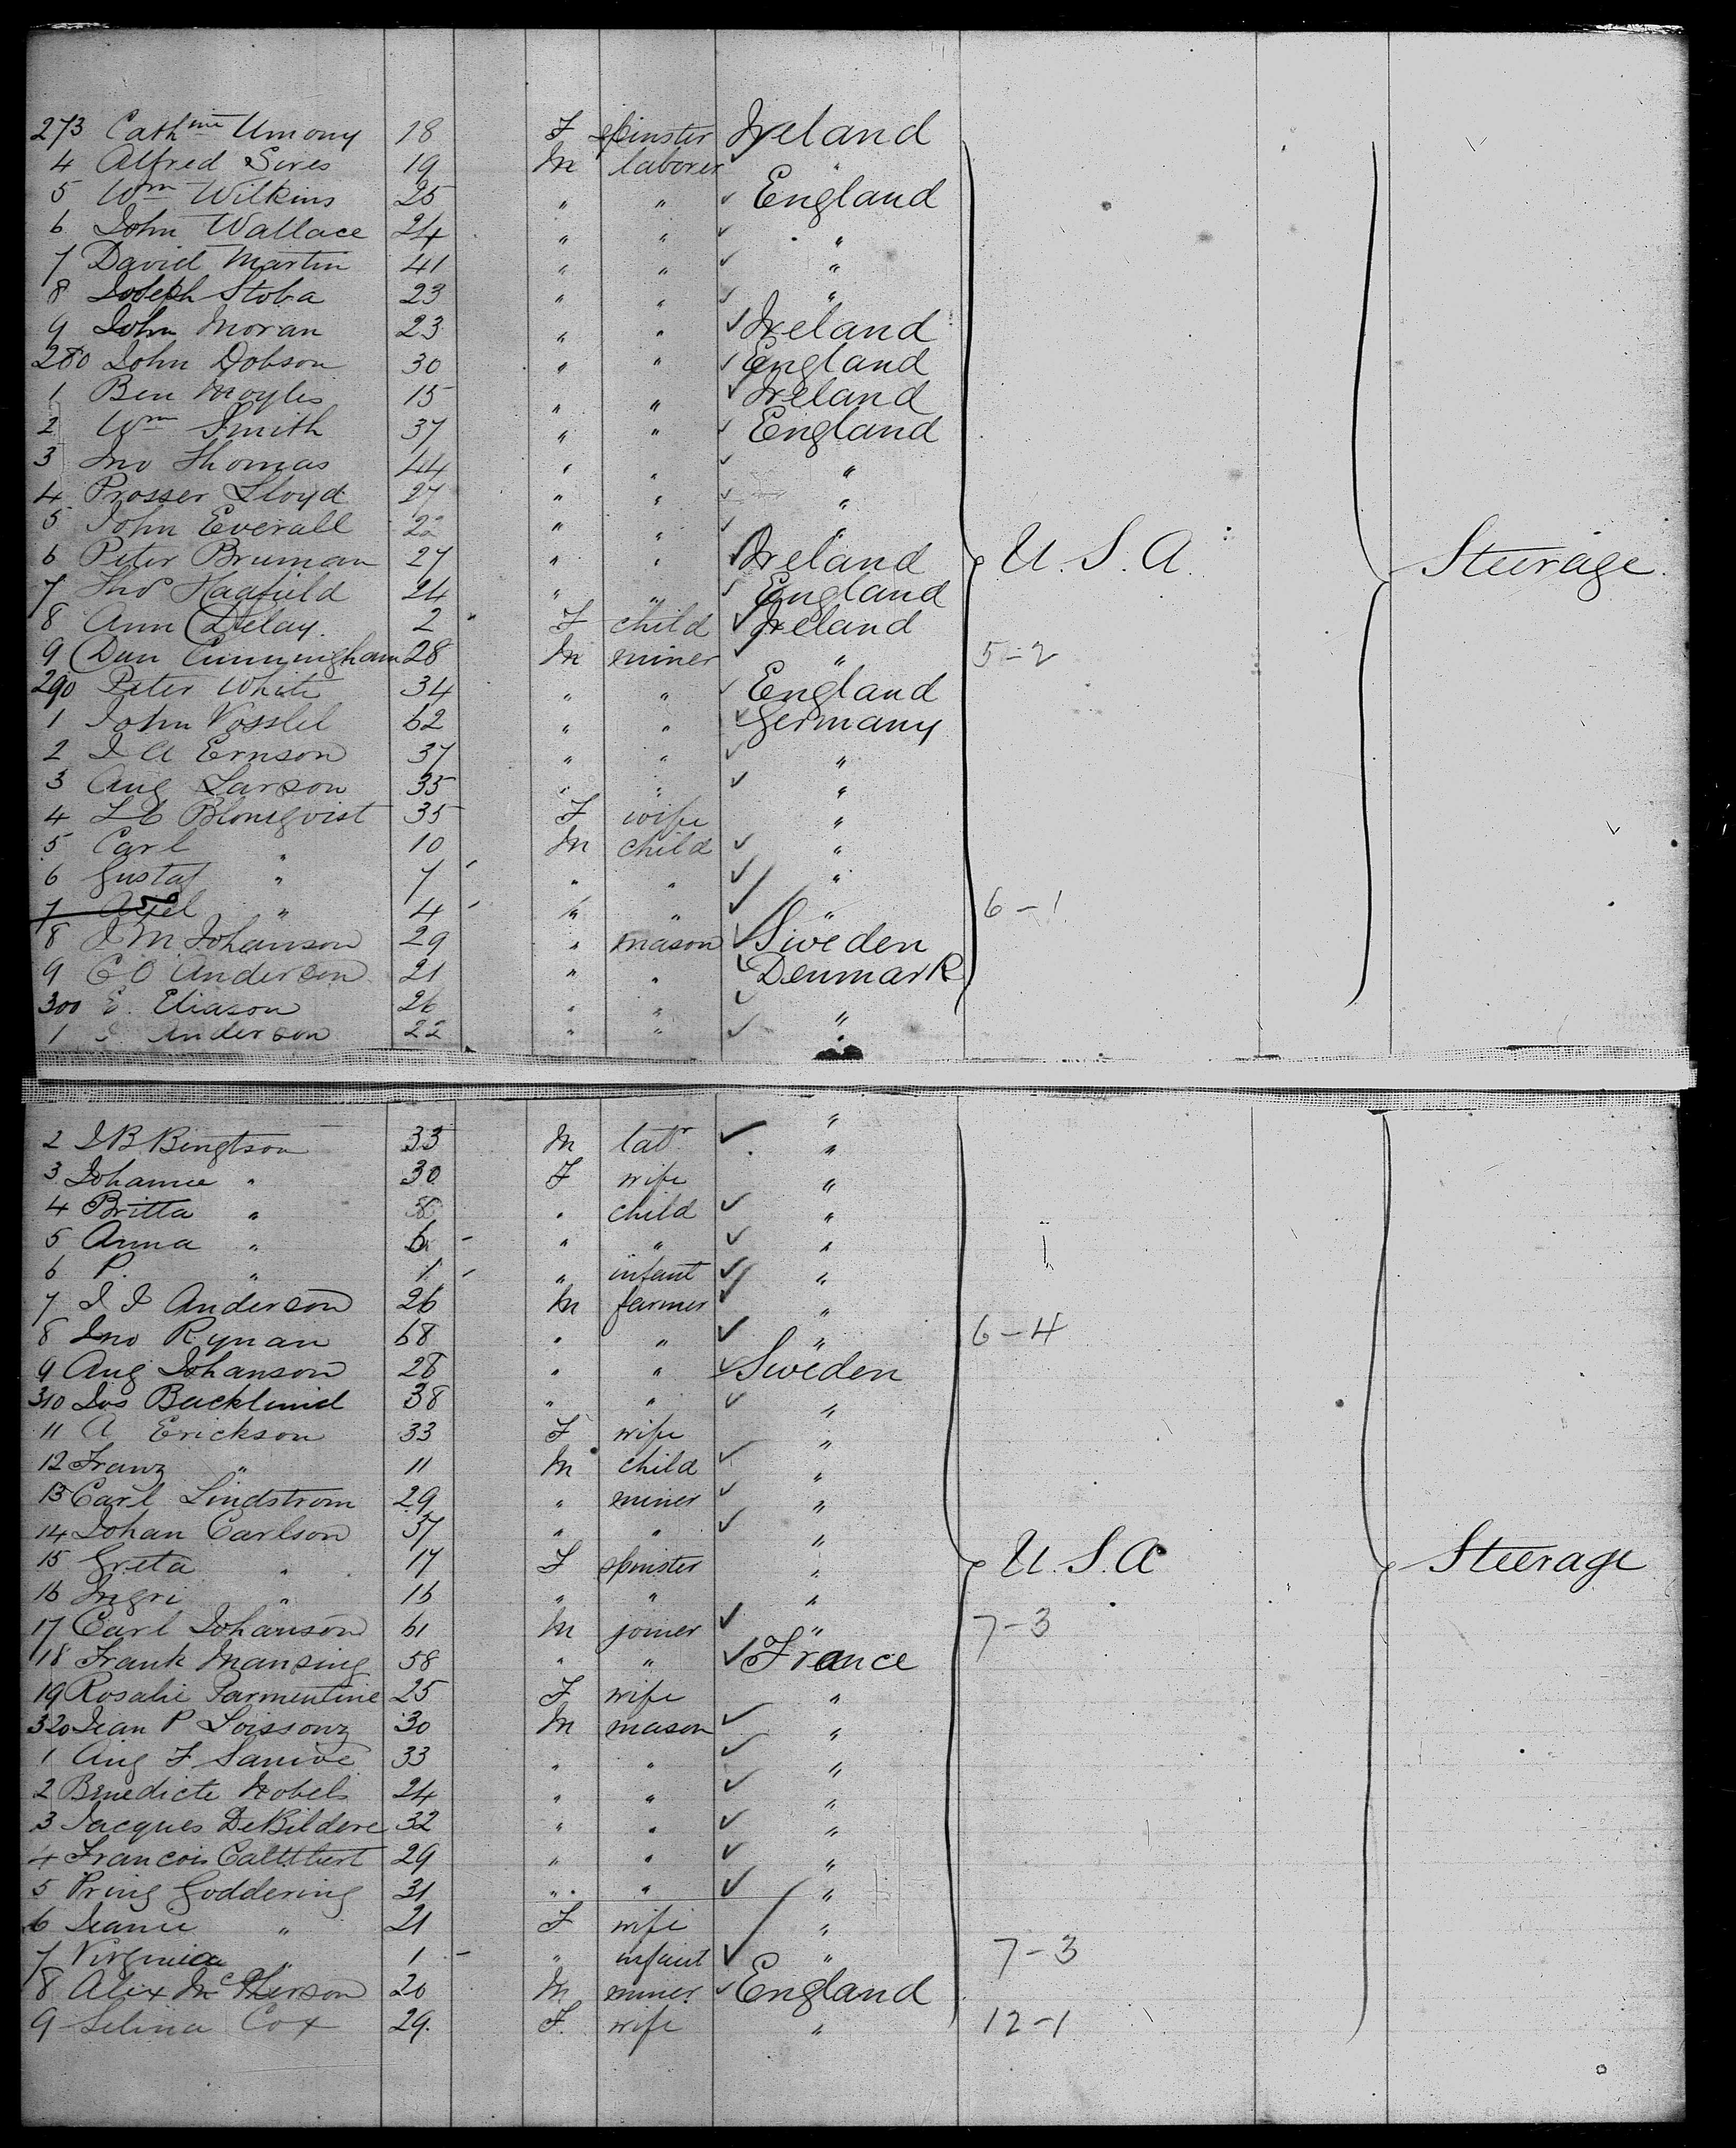 273 Cathne Umony 18 F spinster Ireland
4 Alfred Sires 19 M laborer "
5 Wm Wilkins 25 " " England
6 John Wallace 24 " " "
7 David Martin 41 " " "
8 Joseph Stoba 23 " " "
9 John Moran 23 " " Ireland
280 John Dobson 30 " " England
1 Ben Moyles 15 " " Ireland
2 Wm Smith 37 " " England
3 Jno Thomas 44 " " "
4 Prosser Lloyd 27 " " "
5 John Everall 22 " " "
6 Peter Bruman 27 " " Ireland U.S.A. Steerage
7 Thos Hadfield 24 " " England
8 Ann Delay 2 F child Ireland
9 Dan Cunningham 28 M miner " 5-2
290 Peter White 34 " " England
1 John Vosslel 62 " " Germany
2 J A Ernson 37 " " "
3 Aug Larson 35 " " "
4 L C Blomqvist 35 F wife "
5 Carl " 10 M child "
6 Gustaf " 7 " " "
7 Axel " 4 " " " 6-1
8 J M Johanson 29 " mason Sweden
9 C O Anderson 21 " " Denmark
300 E. Eliason 26 " " "
1 J Anderson 22 " " "
2 J B Bengtson 33 M labr "
3 Johanne " 30 F wife "
4 Britta " 8 " child "
5 Anna " 6 " " "
6 P. " 1 " infant "
7 J J Anderson 26 M farmer "
8 Jno Rynan 68 " " " 6-4
9 Aug Johanson 28 " " Sweden
310 Jos Backlund 38 " " "
11 A Erickson 33 F wife "
12 Franz " 11 M child "
13 Carl Lindstrom 29 " miner "
14 Johan Carlson 37 " " "
15 Greta " 17 F spinster " U.S.A Steerage
16 Ingri " 16 " " "
17 Carl Johanson 61 M joiner " 7-3
18 Frank Mansing 58 " " France
19 Rosalie Parmentine 25 F wife "
320 Jean P Loissonz 30 M mason "
1 Aug F Sanive 33 " " "
2 Benedicte Nobels 24 " " "
3 Jacques DeBildere 32 " " "
4 Francois 29 " " "
5 Pring Goddering 31 " " "
6 Jeanne " 21 F wife "
7 Virginia " 1 " infant " 7-3
8 Alex McPherson 20 M miner England
9 Selina Cox 29. F. wife " 12-1